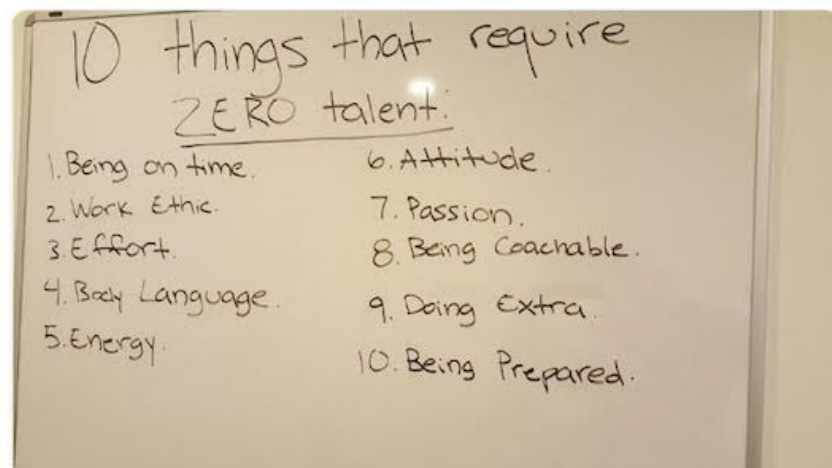 10 things that require
ZERO talent:
1. Being on time.
2. Work Ethic.
3. Effort.
4. Body Language.
5. Energy.
6. Attitude.
7. Passion.
8. Being Coachable.
9. Doing Extra.
10. Being Prepared.